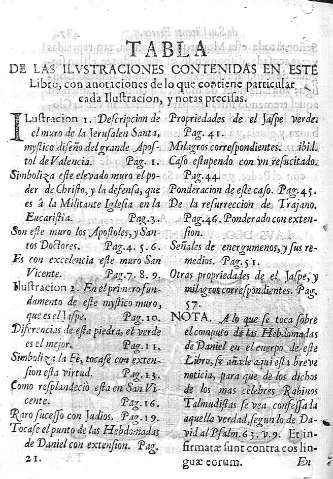 TABLA
DE LAS ILVSTRACIONES CONTENIDAS EN ESTE
Libro, con anotaciones de lo que contiene particular
cada Ilustracion, y notas precisas.
Ilustracion 1. Descripcion de
el muro de la Jerusalen Santa,
mystico diseño del grande Apos-
tol de Valencia. Pag. 1.
Simboliza este elevado muro el po-
der de Christo, y la defensa, que
es à la Militante Iglesia en la
Eucaristia. Pag. 3.
Son este muro los Apostoles, y San-
tos Doctores. Pag. 4. 5. 6.
Es con excelencia este muro San
Vicente. Pag. 7. 8. 9.
Ilustracion 2. En el primero fun-
damento de este mystico muro,
que es el Jaspe. Pag. 10.
Diferencias de esta piedra, el verde
es el mejor. Pag. 11.
Simboliza la Fè, tocase con exten-
sion esta virtud. Pag. 13.
Como resplandeciò esta en San Vi-
cente. Pag. 16.
Raro sucesso con Judios. Pag. 19.
Tocase el punto de las Hebdomadas
de Daniel con extension. Pag.
21.
Propriedades de el Jaspe verde.
Pag. 41.
Milagros correspondientes. ibid.
Caso estupendo con vn resucitado.
Pag. 44
Ponderacion de este caso. Pag. 45.
De la resurreccion de Trajano.
Pag. 46. Ponderado con exten-
sion.
Señales de energumenos, y sus re-
medios. Pag. 51.
Otras propriedades de el Jaspe, y
milagros correspondientes. Pag.
57.
NOTA. A lo que se toca sobre
el computo de las Hebdomadas
de Daniel en el cuerpo de este
Libro, se añade aqui esta breve
noticia, para que de los dichos
de los mas celebres Rabinos
Talmudistas se vea confessa la
aquella verdad, segun lo de Da-
vid al Psalm. 63. v. 9. Et in-
firmatæ sunt contra eos lin-
guæ eorum. En